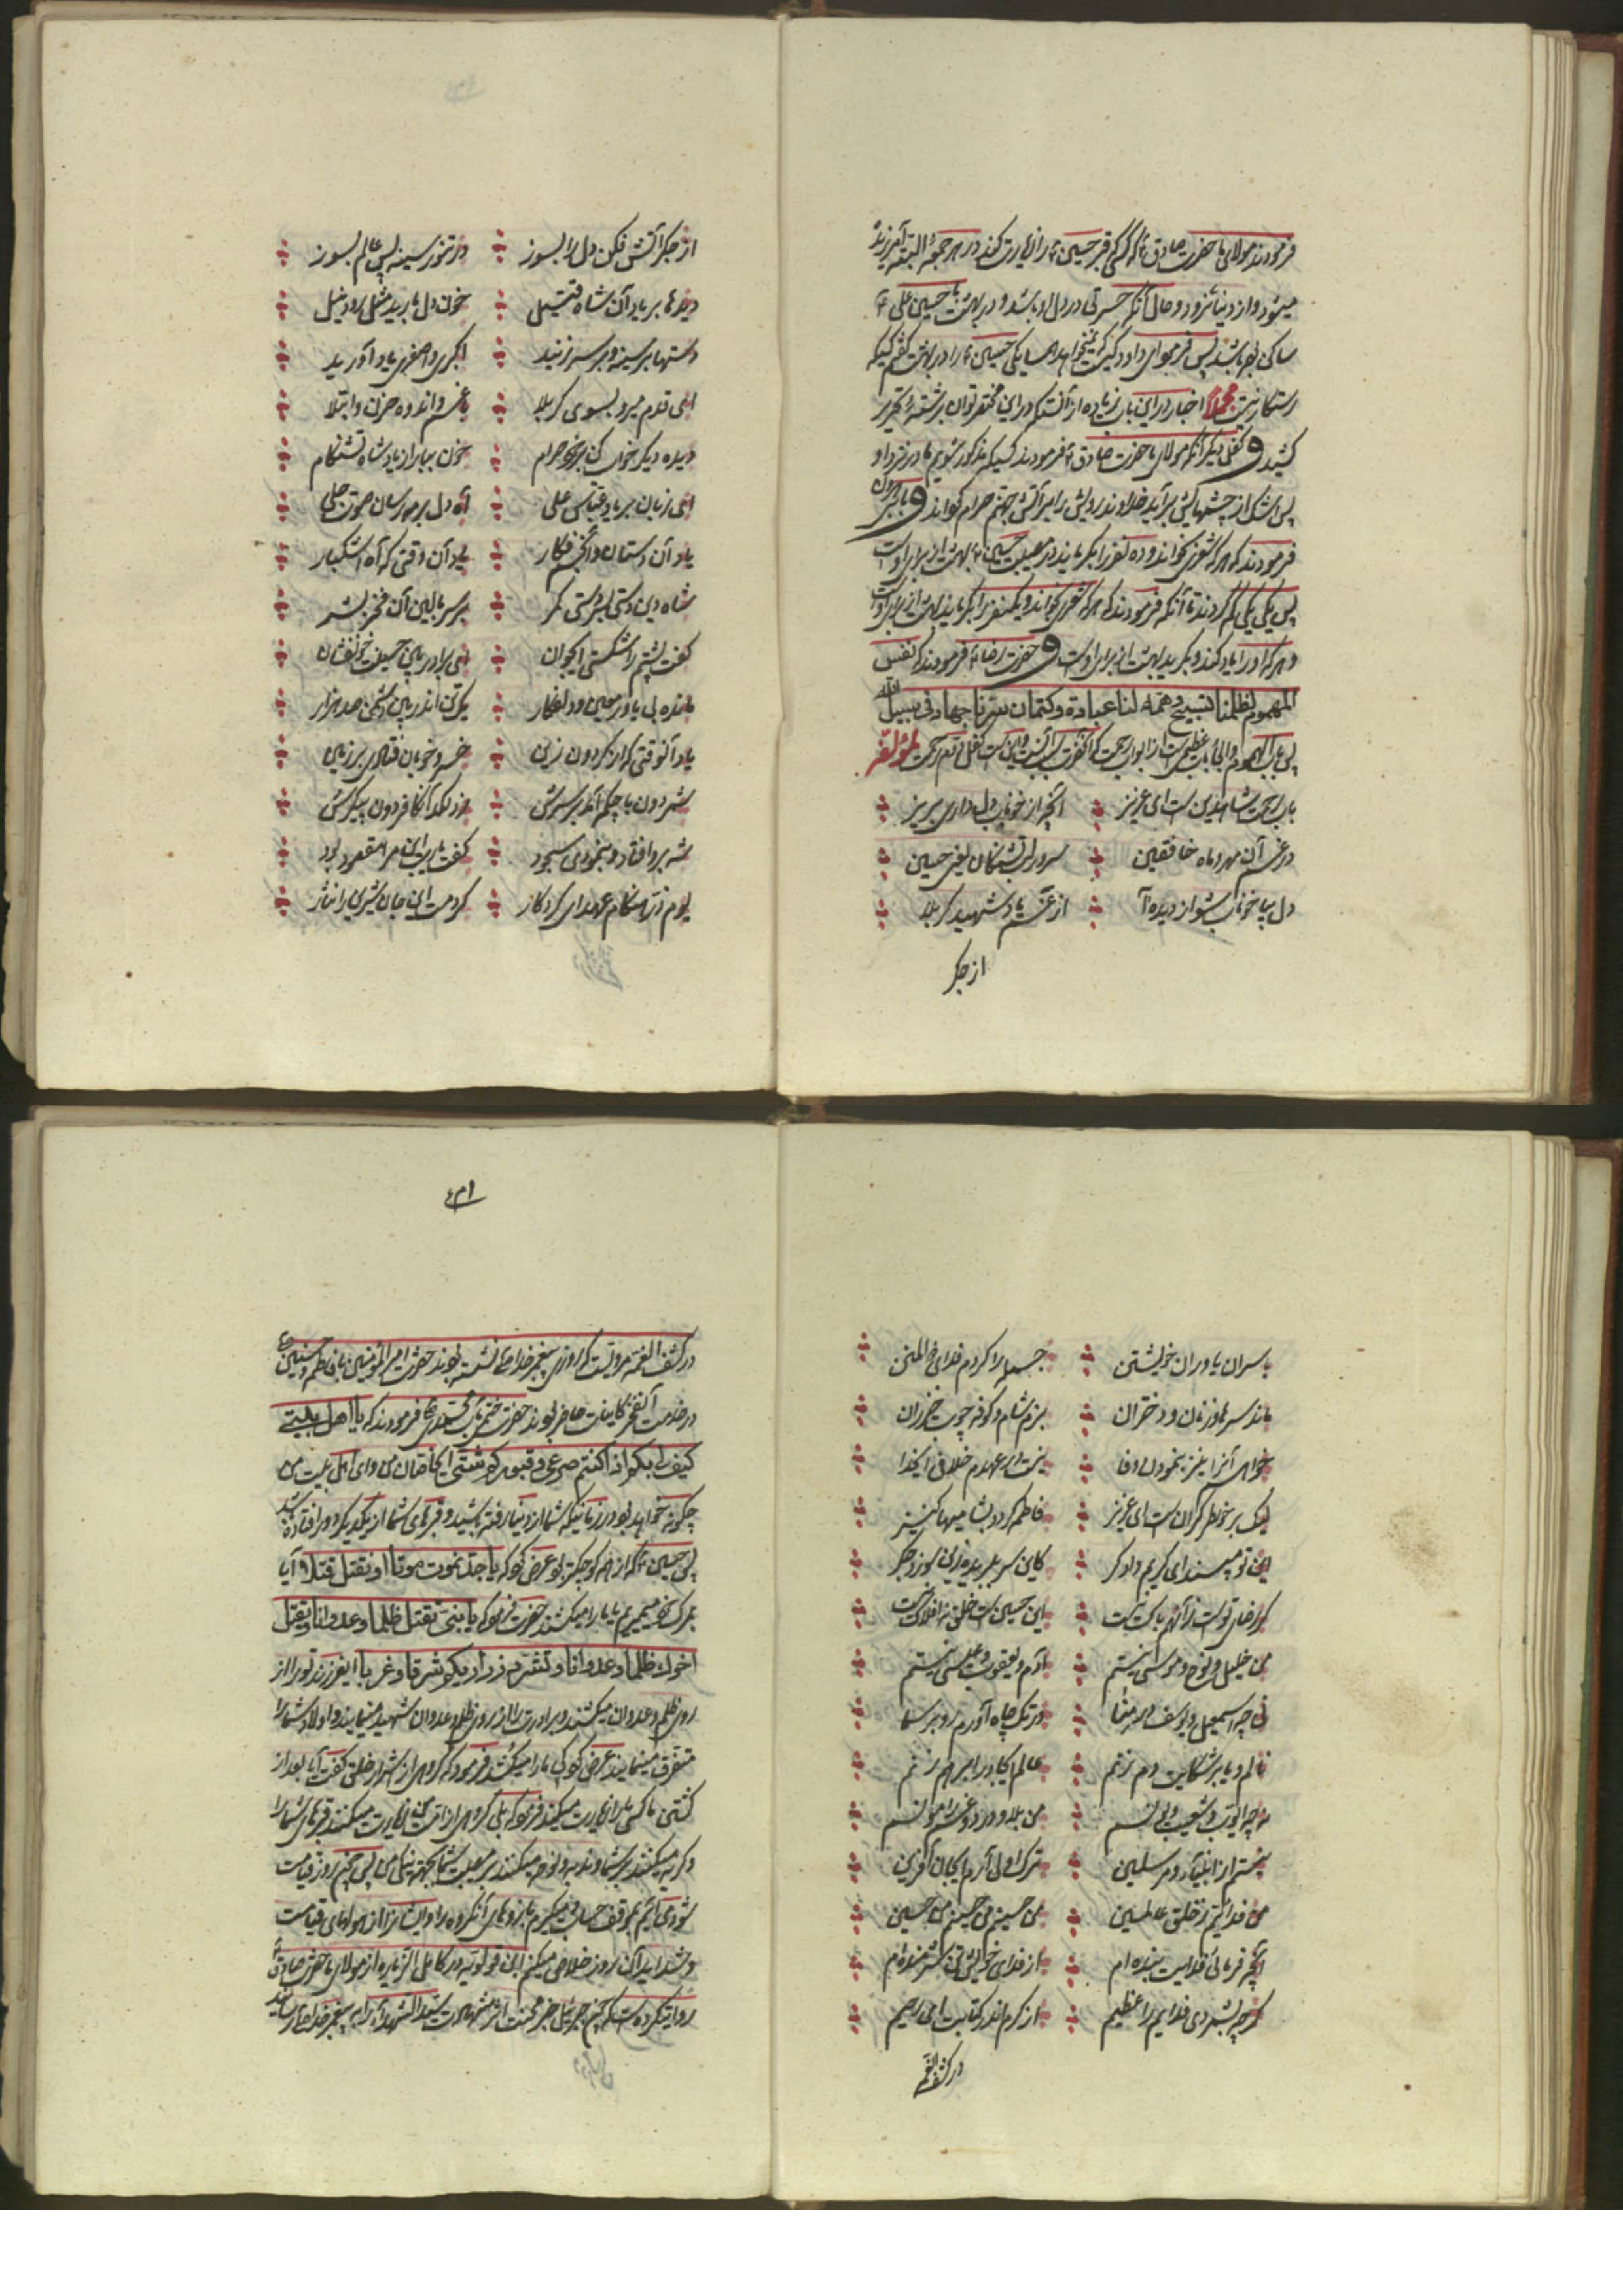 فرمودند مولای ما حضرت صادق ع که هر کسی قبر حسین ع را زیارت کند در هر جمعه البته آمرزیده
میشود و از دنیا نرود و حال آنکه حسرتی در دل او باشد و در بهشت با حسین علی ع
ساکن بوده باشد پس فرمود ای داود کیست که نمیخواهد همسایگی حسین ع را در بهشت گفتم کسیکه
رستگار نیست مجملا اخبار در این باب زیاده از آنستکه در این مختصر توان برشته تحریر
کشید و نقل دیگر آنکه مولای ما حضرت صادق ع فرمودند کسیکه مذکور شویم ما در نزد او
پس اشک از چشمهایش برآید خداوند رویش را بر آتش جهنم حرام گرداند و
فرمودند که هر که شعری بخواند و ده نفر را بگریاند در مصیبت حسین ع بهشت از برای اوست
پس یکی یکی کم کردند تا آنکه فرمودند که هر که شعری بخواند و یکنفر را بگریاند بهشت از برای اوست
و هر که او را یاد کند و بگرید بهشت از برای اوست و حضرت رضا ع فرمودند که نفس
المهموم لظلمنا تسبیح وهمه لنا عبادة وکتمان سرنا جهاد فی سبیل الله
باب رحمت شاهدین است ای عزیز آنچه از خوناب دل داری بریز
در غم آن مهر و ماه خافقین سرور لب تشنگان یعنی حسین
دل بیا خوناب شو از دیده آ از غم یاد شهید کربلا
از جگر
از جگر آتش فکن دل را بسوز در تنور سینه پس عالم بسوز
دیدها بر یاد آن شاه قتیل خون دل بارید مثل رود نیل
دستها بر سینه و بر سر زنید اکبری و اصغری یاد آورید
ای قدم میرو بسوی کربلا با غم و اندوه و حزن و ابتلا
دیده دیگر خواب کن بر خود حرام خون ببار از یاد شاه تشنه کام
ای زبان بر یاد عباس علی آه دل برمیرسان صوت جلی
یاد آن دستان و آن جسم فکار یاد آن وقتی که آه اشکبار
شاه دین دستی بسر دستی کمر بر سر بالین آن فخر بشر
گفت پشتم را شکستی ایجوان ای برادر بین حسینت خونفشان
مانده بی یاور معین و دلفکار یک تن اندر بین دشمن صد هزار
یاد آنوقتی که از گردون زین خسرو خوبان فتادی بر زمین
شمر دون با چکمه آمد بر سرش زد لگد آن کافر دون پیکرش
شه برو افتاد و بنمودی سجود گفت یا رب این مرا مقصود بود
یوم ذر هنگام عهد ای کردگار کردمت این جان شیری را نثار
با سران یاوران خویشتن جمله را کردم فدای ذوالمنن
ماند سرها و زنان و دختران بزم شام و کوفه چوب خیزران
خواهی آنرا نیز بنمودن وفا نیست در عهدم خلافی ایخدا
لیک بر خاطر گران است ای عزیز فاطمه گردد بشامیها کنیز
این تو مپسند ای کریم دادگر کاین سر ببریده زین سوزد جگر
گر رضای تست زآنهم باک نیست این حسین است خلق نه افلاک نیست
من خلیل و نوح و موسی نیستم آدم و یعقوب و عیسی نیستم
نی چه اسمعیل و یوسف در منا در تک چاه آورم رو بر سما
نالم و یا بر شکایت دم زنم عالم ایجاد را بر هم زنم
نه چه ایوب و شعیب و یونسم من بلا و درد و غم را مونسم
نیستم از انبیاء و مرسلین ترک اولی آرم ایجان آفرین
من فدا گشتم ز خلق عالمین من حسینم من حسینم من حسین
آنچه فرمائی فدایت بنده ام از فدای خویشتن شرمنده ام
گر چه بشمردی فدایم را عظیم از کرم اندر کتابت ای رحیم
در کشف الغمه
۴۳۱
در کشف الغمه مرویست که روزی پیغمبر خدا ص نشسته بودند حضرت امیر المؤمنین با فاطمه و حسنین ع
در خدمت آنفخر کاینات حاضر بودند حضرت ختمی مآب محمد ص فرمودند که یا اهل بیتی
کیف بکم اذا کنتم صرعی وقبورکم شتی ایجانان من و ای اهل بیت من
چگونه خواهد بود در زمانیکه شما از دنیا رفته باشید و قبرهای شما از یکدیگر دور افتاده باشد
پس حسین ع که از همه کوچکتر بود عرض کرد که یا جداه نموت موتا او نقتل قتلا آیا
بمرگ خود میمیریم یا ما را میکشند حضرت فرمود که یا بنی تقتل ظلما وعدوانا ویقتل
اخوک ظلما وعدوانا وتشرد ذراریکم شرقا وغربا ایفرزند تو را از
روی ظلم و عدوان میکشند و برادرت را از روی ظلم و عدوان شهید مینمایند و اولاد شما را
متفرق مینمایند عرض کرد کی ما را میکشد فرمود که گروهی از شرار خلق گفت آیا بعد از
کشتن ما کسی ما را زیارت میکند فرمود که بلی گروهی از امت من زیارت میکنند قبرهای شما را
و گریه میکنند بر شما و ندبه و نوحه میکنند بر مصیبت شما بجهة نیکی من پس چون روز قیامت
شودی آیم بموقف حساب و میگیرم بازوهای آنگروه را و ایشانرا از هولهای قیامت
و شداید آن روز خلاص میکنم ابن قولویه در کامل الزیاره از مولای ما حضرت صادق ع
روایتکرده است که چون جبرئیل خبر محنت اثر شهادت سید الشهدا را به پیغمبر خدا ص رسانید